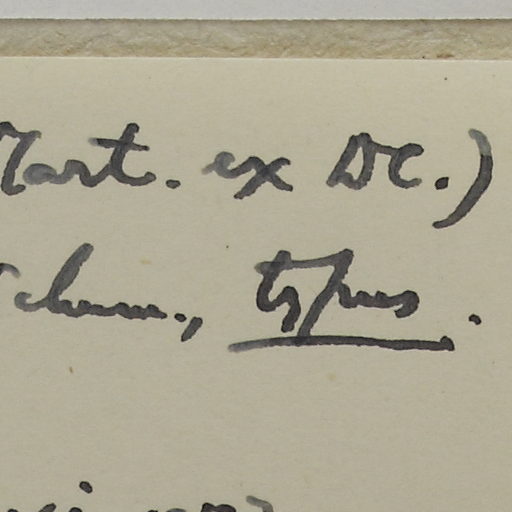 Mart. ex DC.)
chum., typus.